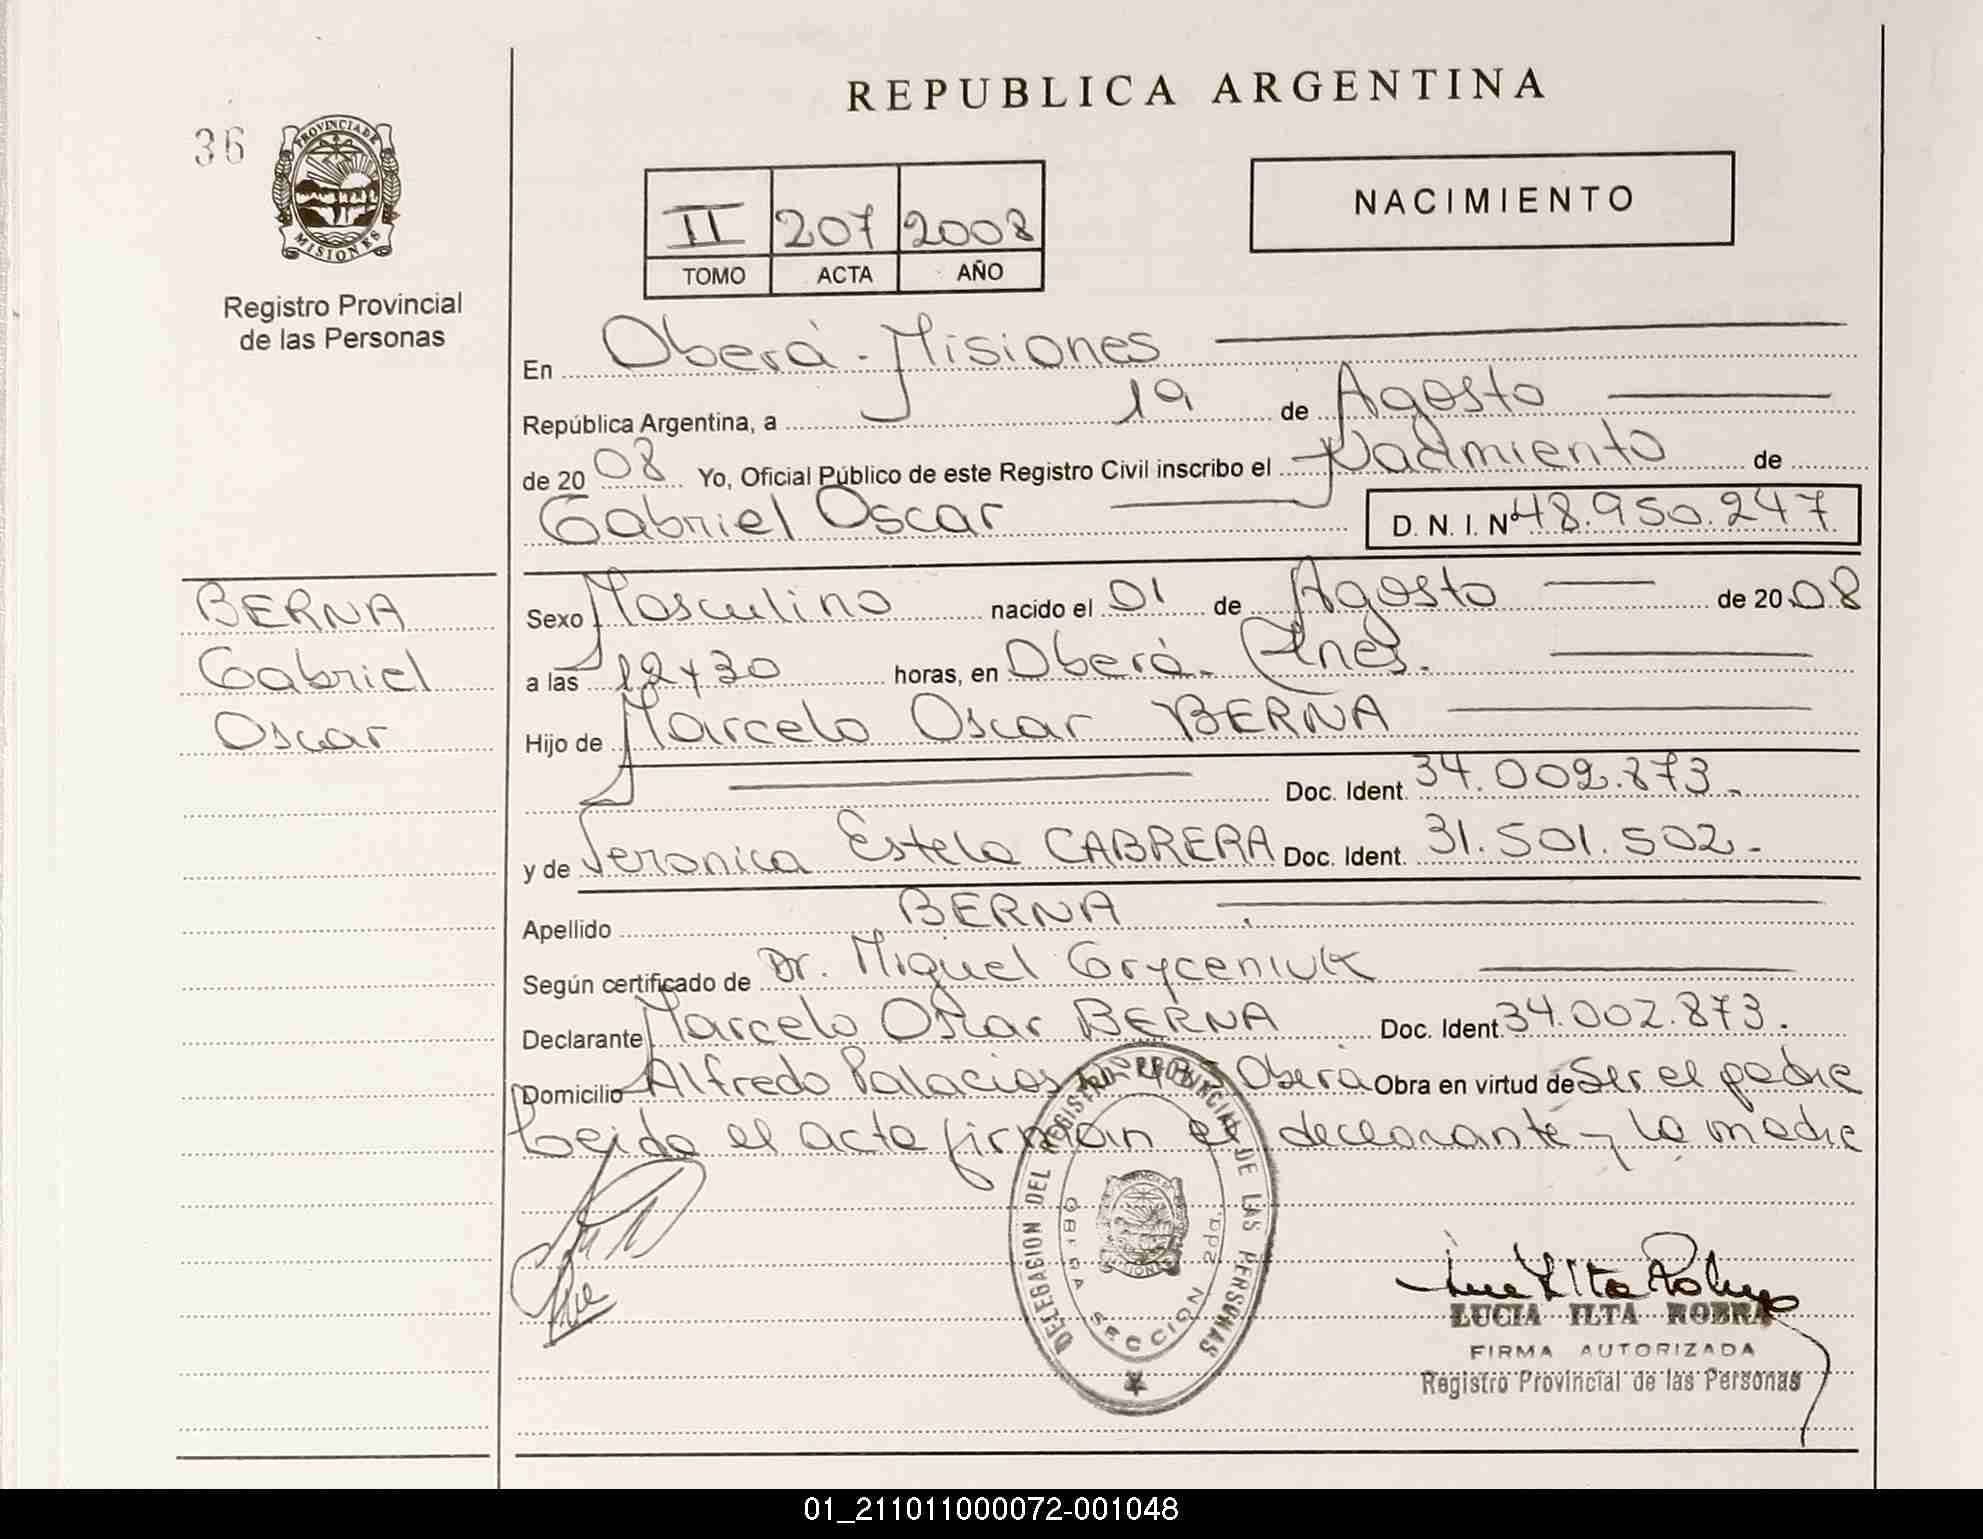 REPUBLICA ARGENTINA
36
PROVINCIA DE MISIONES
Registro Provincial
de las Personas
II 207 2008
TOMO ACTA AÑO
NACIMIENTO
En Oberá - Misiones
República Argentina, a 19 de Agosto
de 2008 Yo, Oficial Público de este Registro Civil inscribo el Nacimiento de
Gabriel Oscar D. N. I. Nº 48.950.247
BERNA
Gabriel
Oscar
Sexo Masculino nacido el 01 de Agosto de 2008
a las 12 y 30 horas, en Oberá. Mnes.
Hijo de Marcelo Oscar BERNA
Doc. Ident. 34.002.873.
y de Veronica Estela CABRERA Doc. Ident. 31.501.502.
Apellido BERNA
Según certificado de Dr. Miguel Gryceniuk
Declarante Marcelo Oscar BERNA Doc. Ident. 34.002.873.
Domicilio Alfredo Palacios Oberá Obra en virtud de Ser el padre
Leida el acta firman el declarante y la madre
DELEGACION DEL REGISTRO PROVINCIAL DE LAS PERSONAS
OBERA SECCION 2da.
LUCIA ILTA ROBRA
FIRMA AUTORIZADA
Registro Provincial de las Personas
01_211011000072-001048